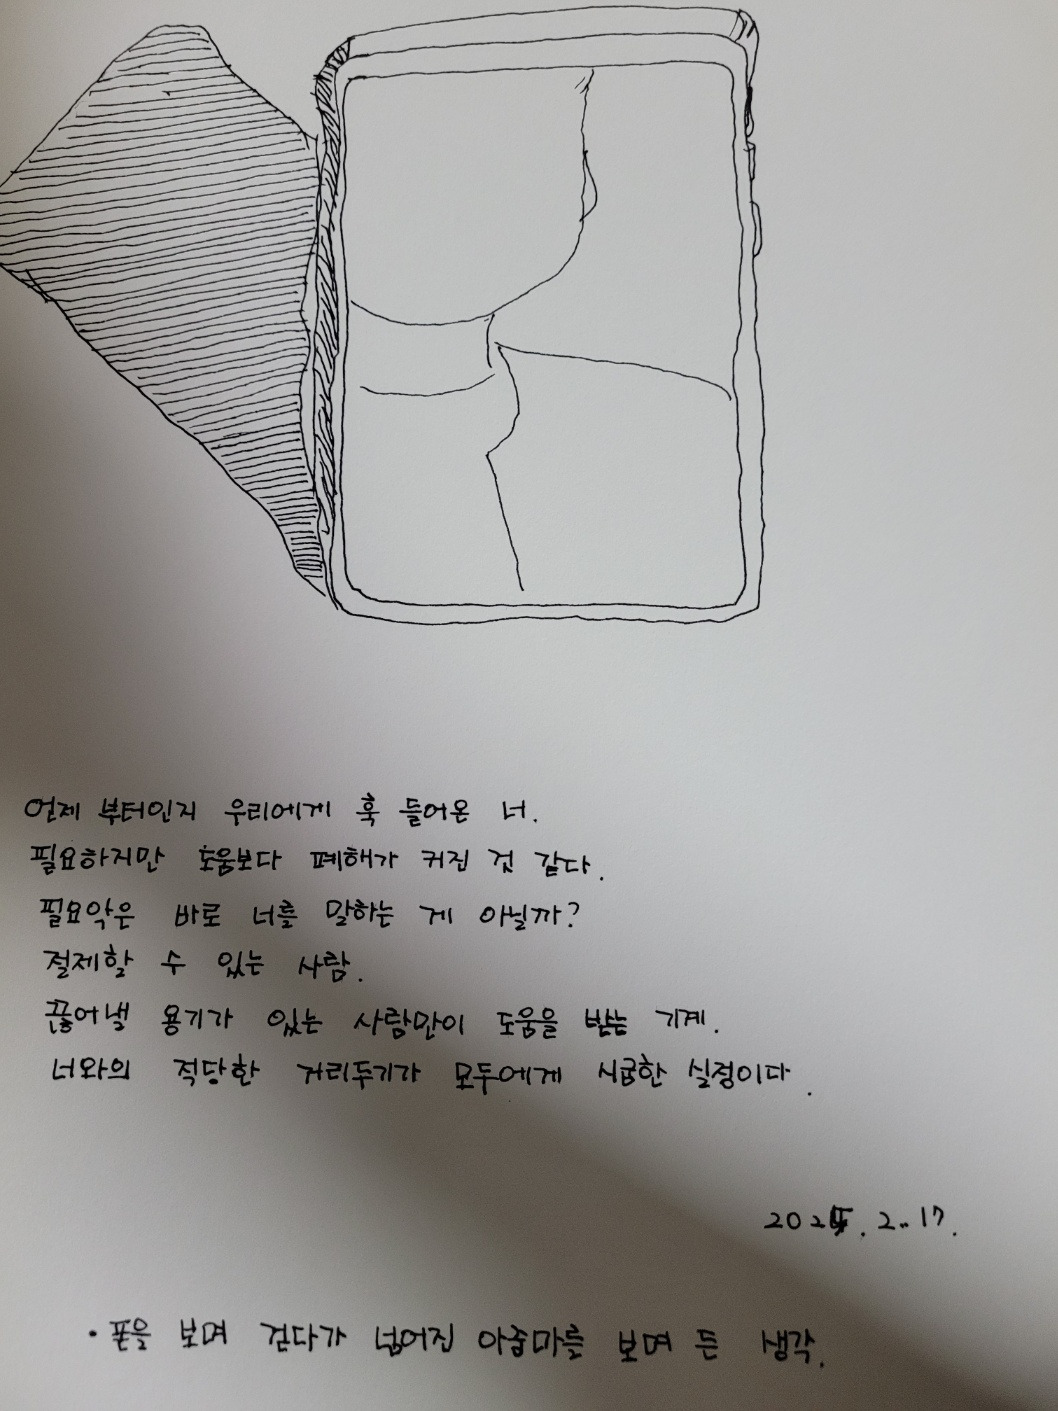 언제 부터인지 우리에게 훅 들어온 너.
필요하지만 도움보다 폐해가 커진 것 같다.
필요악은 바로 너를 말하는 게 아닐까?
절제할 수 있는 사람.
끊어낼 용기가 있는 사람만이 도움을 받는 기계.
너와의 적당한 거리두기가 모두에게 시급한 실정이다.
2025. 2. 17.
• 폰을 보며 걷다가 넘어진 아줌마를 보며 든 생각.